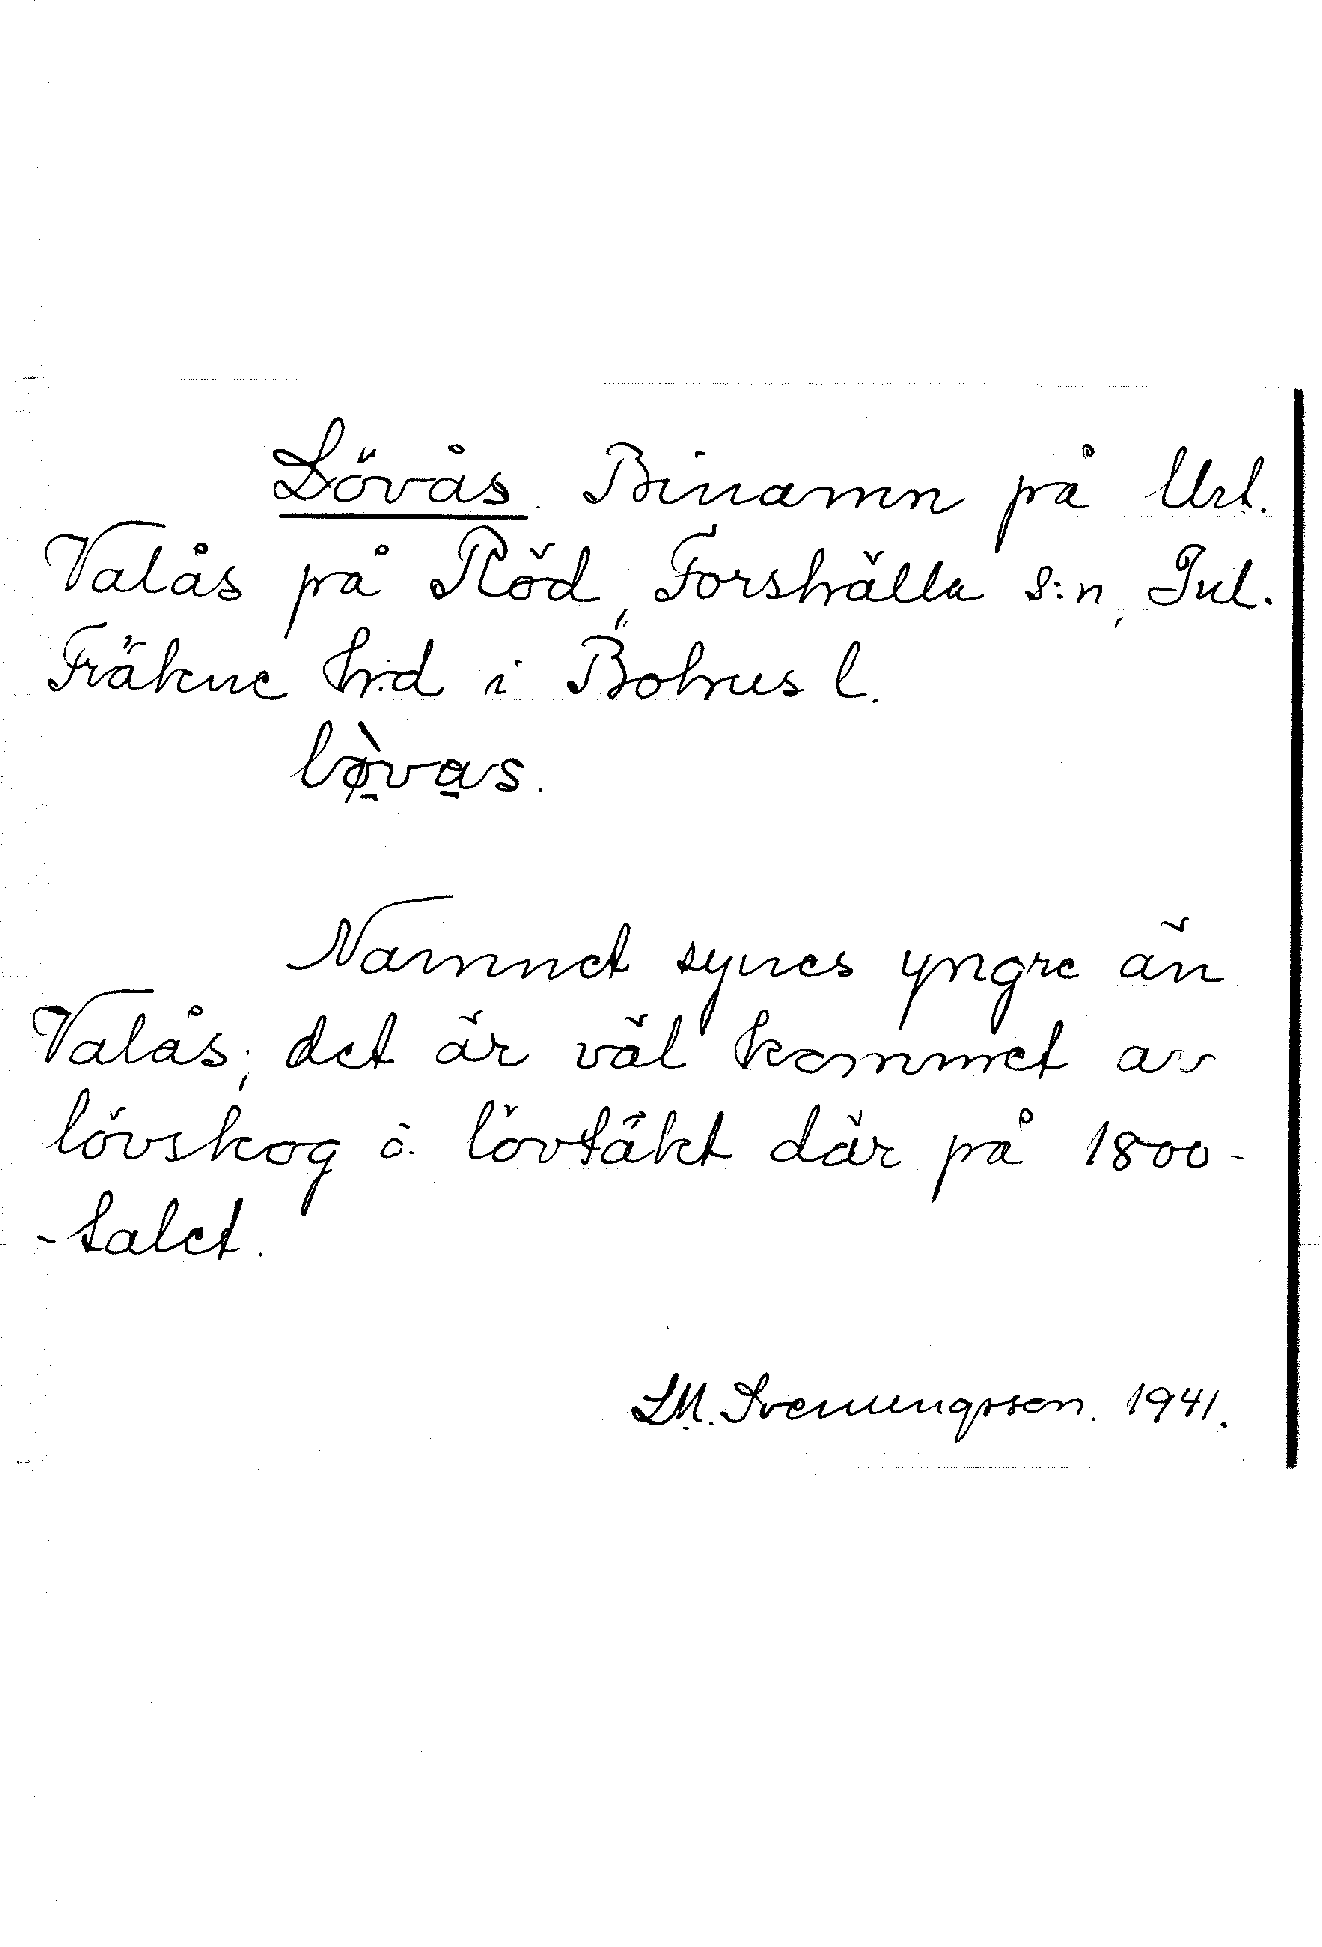 Lövås. Binamn på Url.
Valås på Röd, Forshälla s:n, Inl.
Fräkne hrd i Bohus l.
lø̀vas.
Namnet synes yngre än
Valås; det är väl kommet av
lövskog o. lövtäkt där på 1800-
-talet.
LM. Svenungsson. 1941.